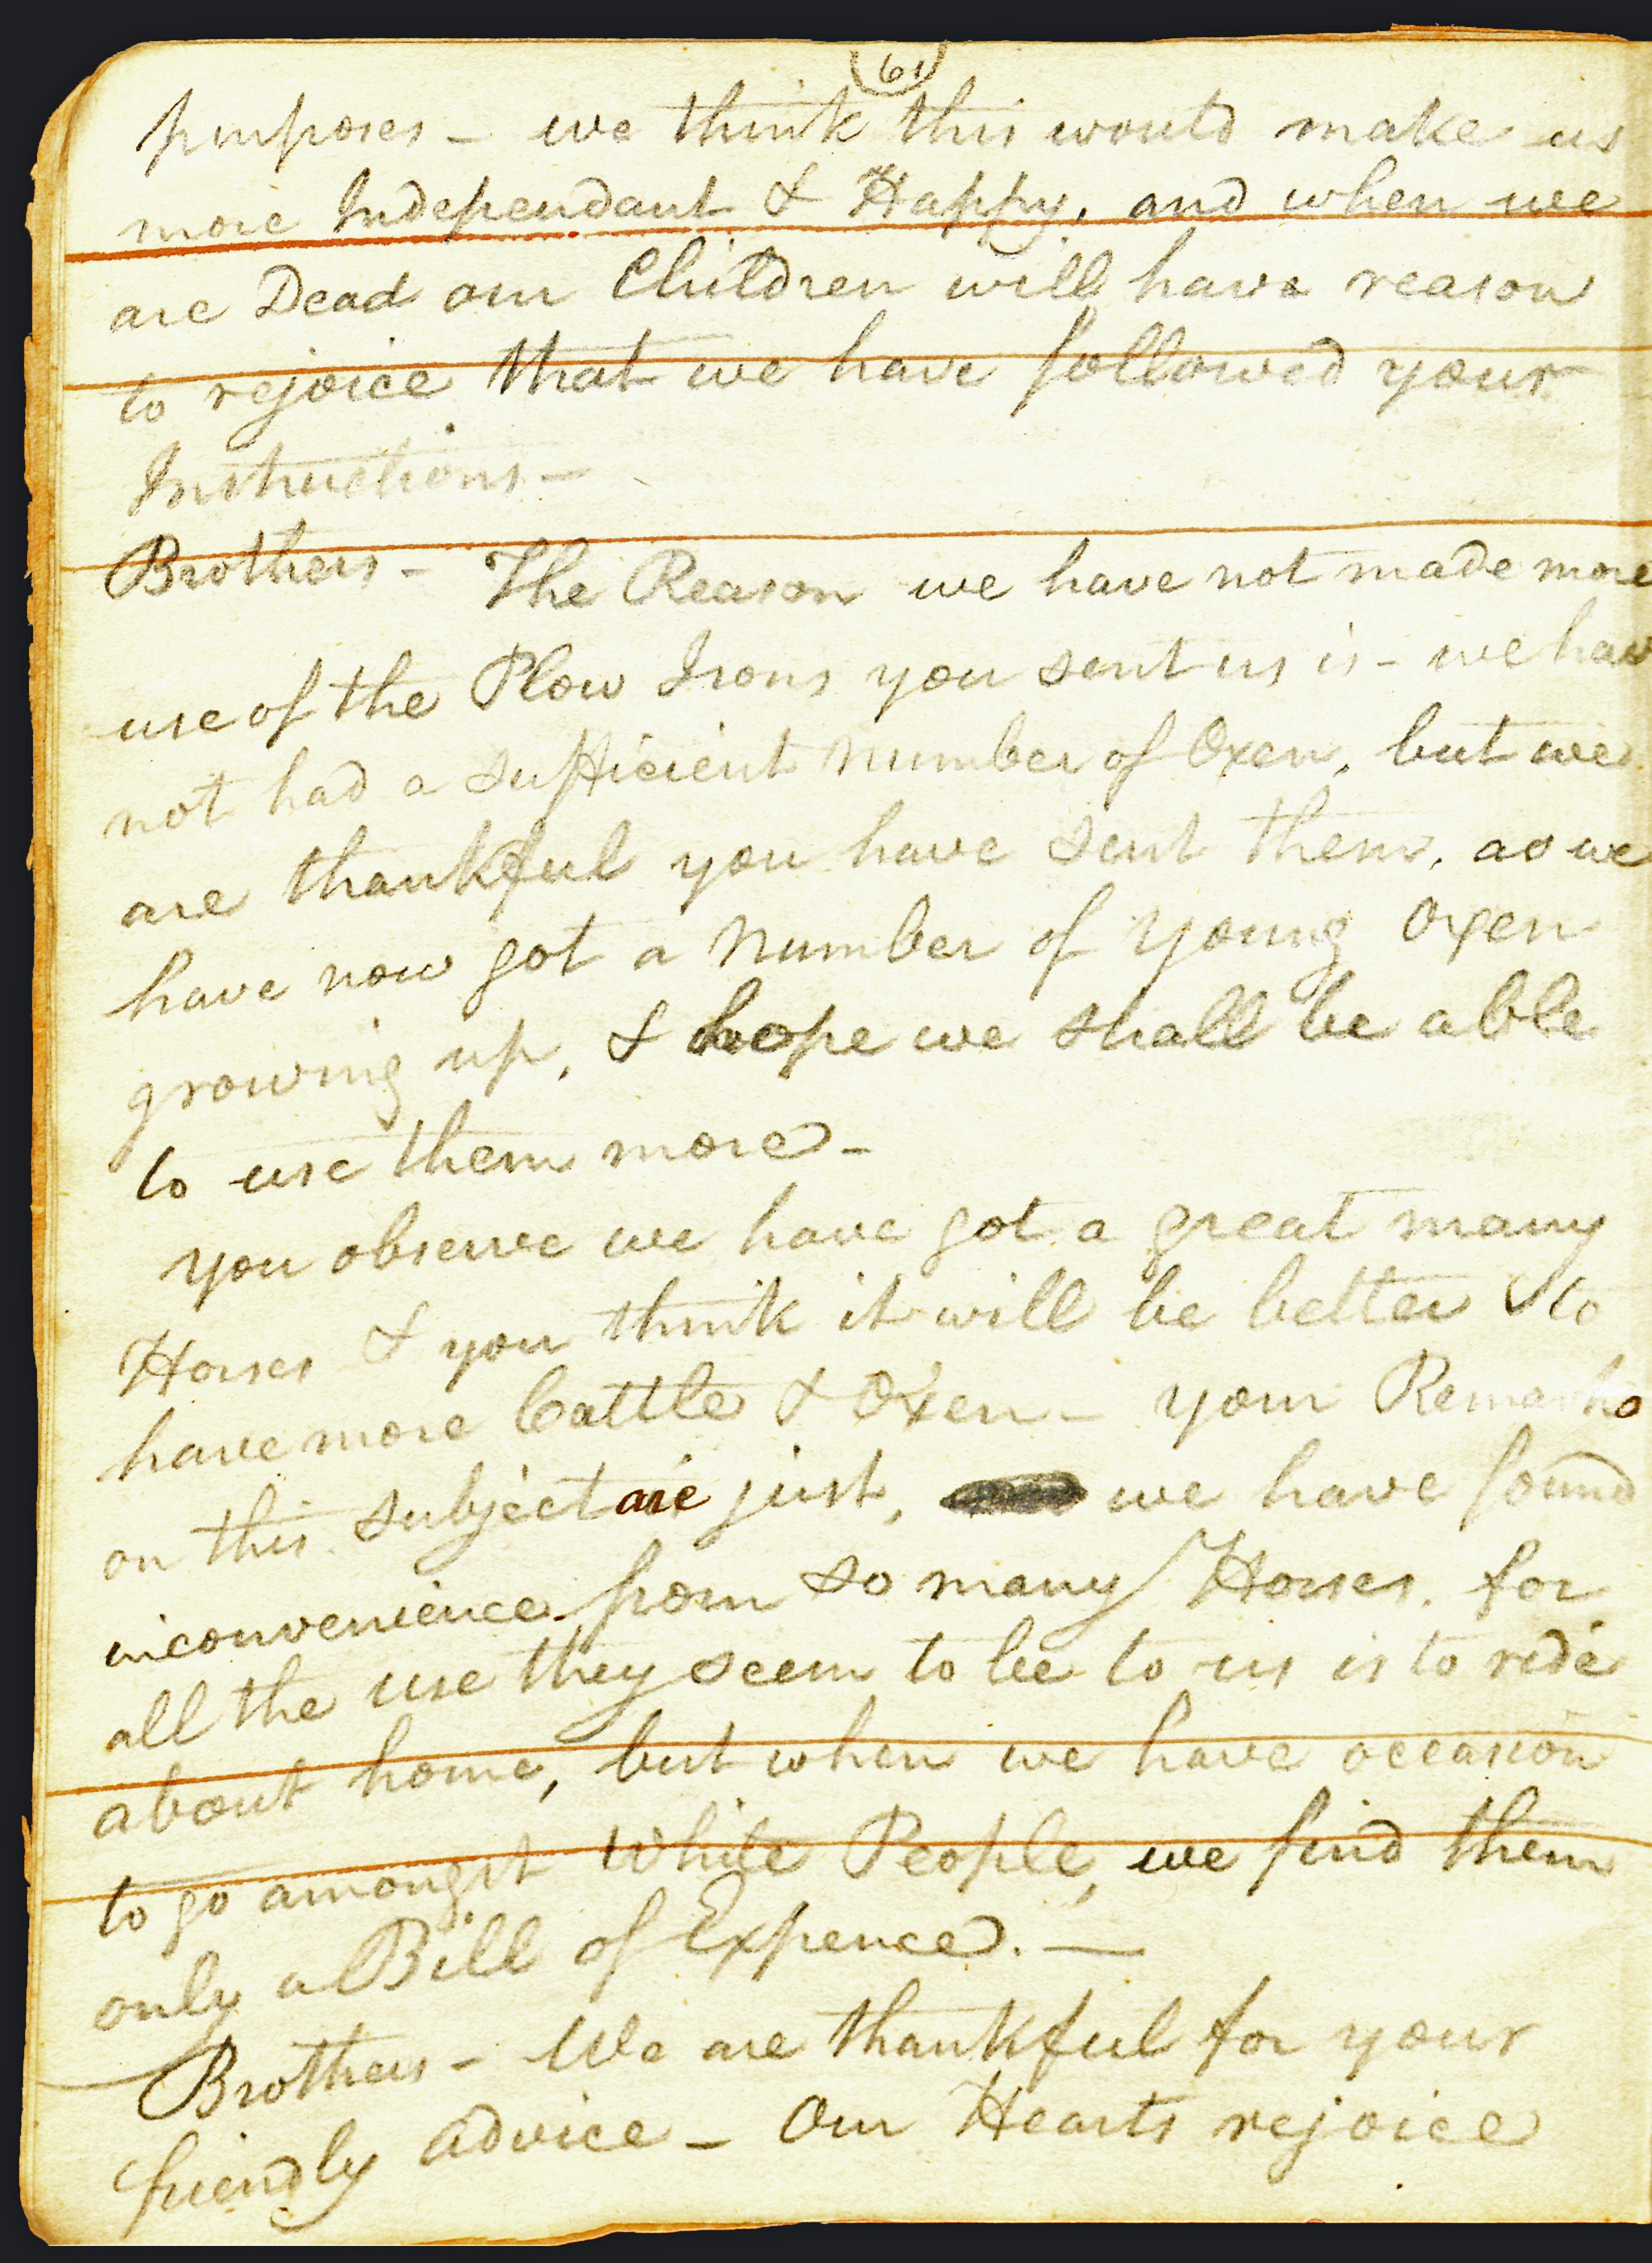 (61)
purposes - we think this would make us
more Independant & Happy, and when we
are Dead our Children will have reason
to rejoice that we have followed your
Instructions -
Brothers - The Reason we have not made more
use of the Plow Irons you sent us is - we hav
not had a sufficient number of Oxen, but we
are thankful you have sent them, as we
have now got a number of young Oxen
growing up, & hope we shall be able
to use them more -
you observe we have got a great many
Horses & you think it will be better to
have more Cattle & Oxen - your Remarks
on this subject are just, we have found
inconvenience from so many Horses. for
all the use they seem to be to us is to ride
about home, but when we have occasion
to go amongst White People, we find them
only a Bill of Expence. —
Brothers - We are thankful for your
friendly advice - Our Hearts rejoice